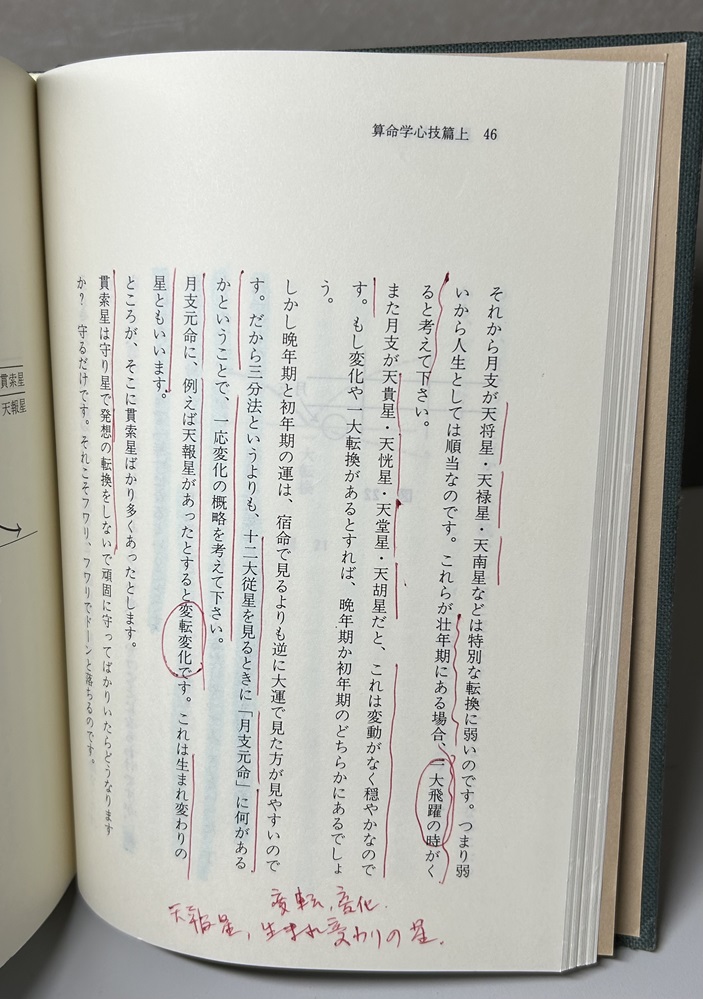 算命学心技篇上 46
それから月支が天将星・天禄星・天南星などは特別な転換に弱いのです。つまり弱
いから人生としては順当なのです。これらが壮年期にある場合、一大飛躍の時がく
ると考えて下さい。
また月支が天貴星・天恍星・天堂星・天胡星だと、これは変動がなく穏やかなので
す。もし変化や一大転換があるとすれば、晩年期か初年期のどちらかにあるでしょ
う。
しかし晩年期と初年期の運は、宿命で見るよりも逆に大運で見た方が見やすいので
す。だから三分法というよりも、十二大従星を見るときに「月支元命」に何がある
かということで、一応変化の概略を考えて下さい。
月支元命に、例えば天報星があったとすると変転変化です。これは生まれ変わりの
星ともいいます。
ところが、そこに貫索星ばかり多くあったとします。
貫索星は守り星で発想の転換をしないで頑固に守ってばかりいたらどうなります
か？　守るだけです。それこそフワリ、フワリでドーンと落ちるのです。
変転、変化.
天報星、生まれ変わりの星.
貫索星
天報星